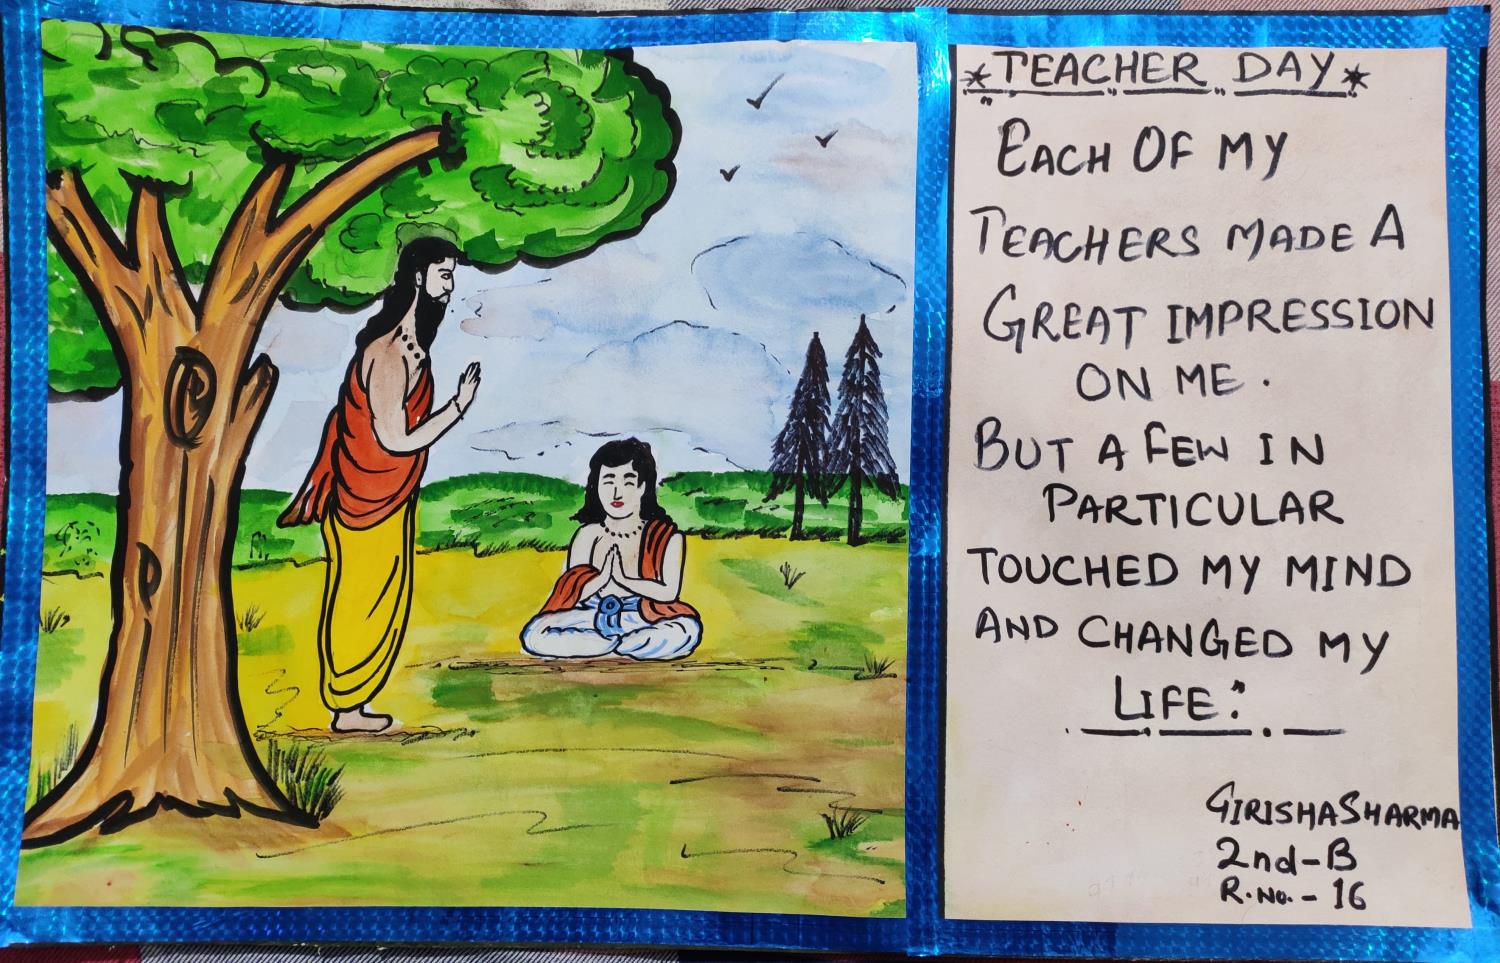 *TEACHER DAY*
EACH OF MY
TEACHERS MADE A
GREAT IMPRESSION
ON ME.
BUT A FEW IN
PARTICULAR
TOUCHED MY MIND
AND CHANGED MY
LIFE."
GIRISHA SHARMA
2nd-B
R.No.-16